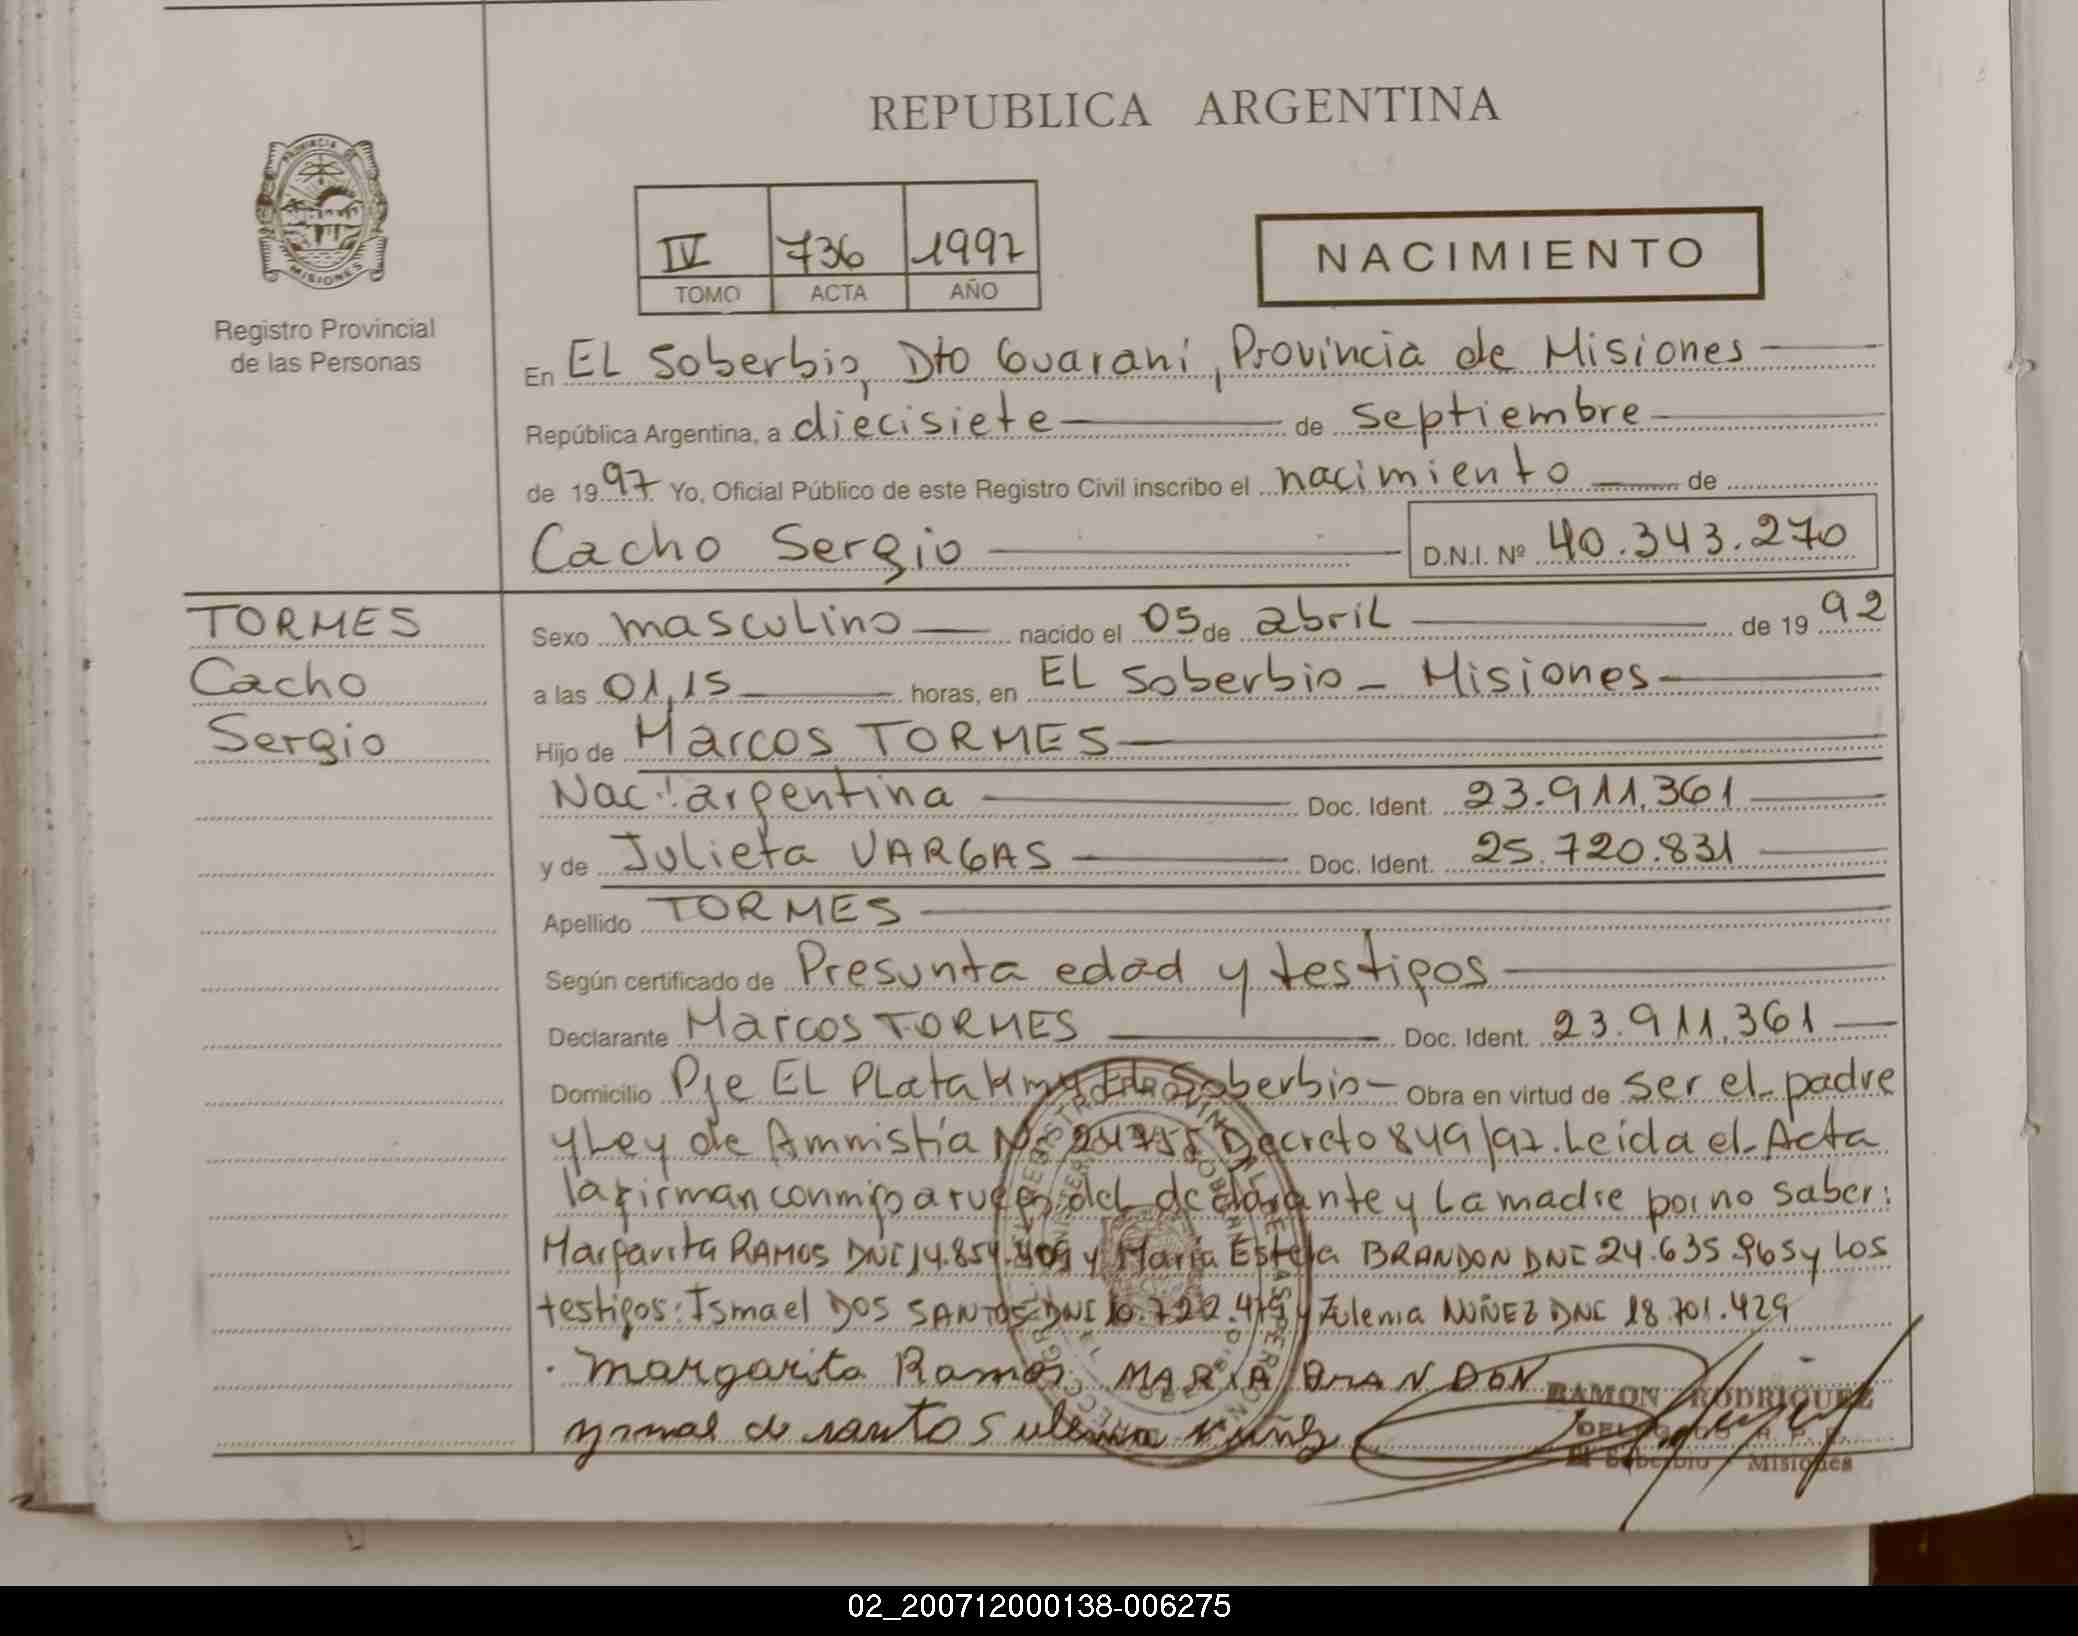 REPUBLICA ARGENTINA
PROVINCIA DE
MISIONES
Registro Provincial
de las Personas
IV 736 1997
TOMO ACTA AÑO
NACIMIENTO
En EL Soberbio, Dto Guaraní, Provincia de Misiones
República Argentina, a diecisiete de septiembre
de 1997 Yo, Oficial Público de este Registro Civil inscribo el nacimiento de
Cacho Sergio D.N.I. Nº 40.343.270
TORMES
Cacho
Sergio
Sexo masculino nacido el 05 de abril de 1992
a las 01,15 horas, en EL Soberbio - Misiones
Hijo de Marcos TORMES
Nac.: argentina Doc. Ident. 23.911.361
y de Julieta VARGAS Doc. Ident. 25.720.831
Apellido TORMES
Según certificado de Presunta edad y testigos
Declarante Marcos TORMES Doc. Ident. 23.911.361
Domicilio Pje EL PLata Km Soberbio - Obra en virtud de ser el padre
y Ley de Amnistía Nº 24755 Decreto 849/97. Leída el Acta
la firman conmigo a ruego del declarante y La madre por no saber:
Margarita RAMOS DNI 14.854.409 y María Estela BRANDON DNI 24.635.965 y los
testigos: Ismael DOS SANTOS DNI 10.722.479 y Zulema NUÑEZ DNI 18.701.429
Margarita Ramos MARIA BRANDON
de santos ulema Nuñez
RAMON RODRIGUEZ
DELEGADO R. P. P.
El Soberbio Misiones
02_200712000138-006275